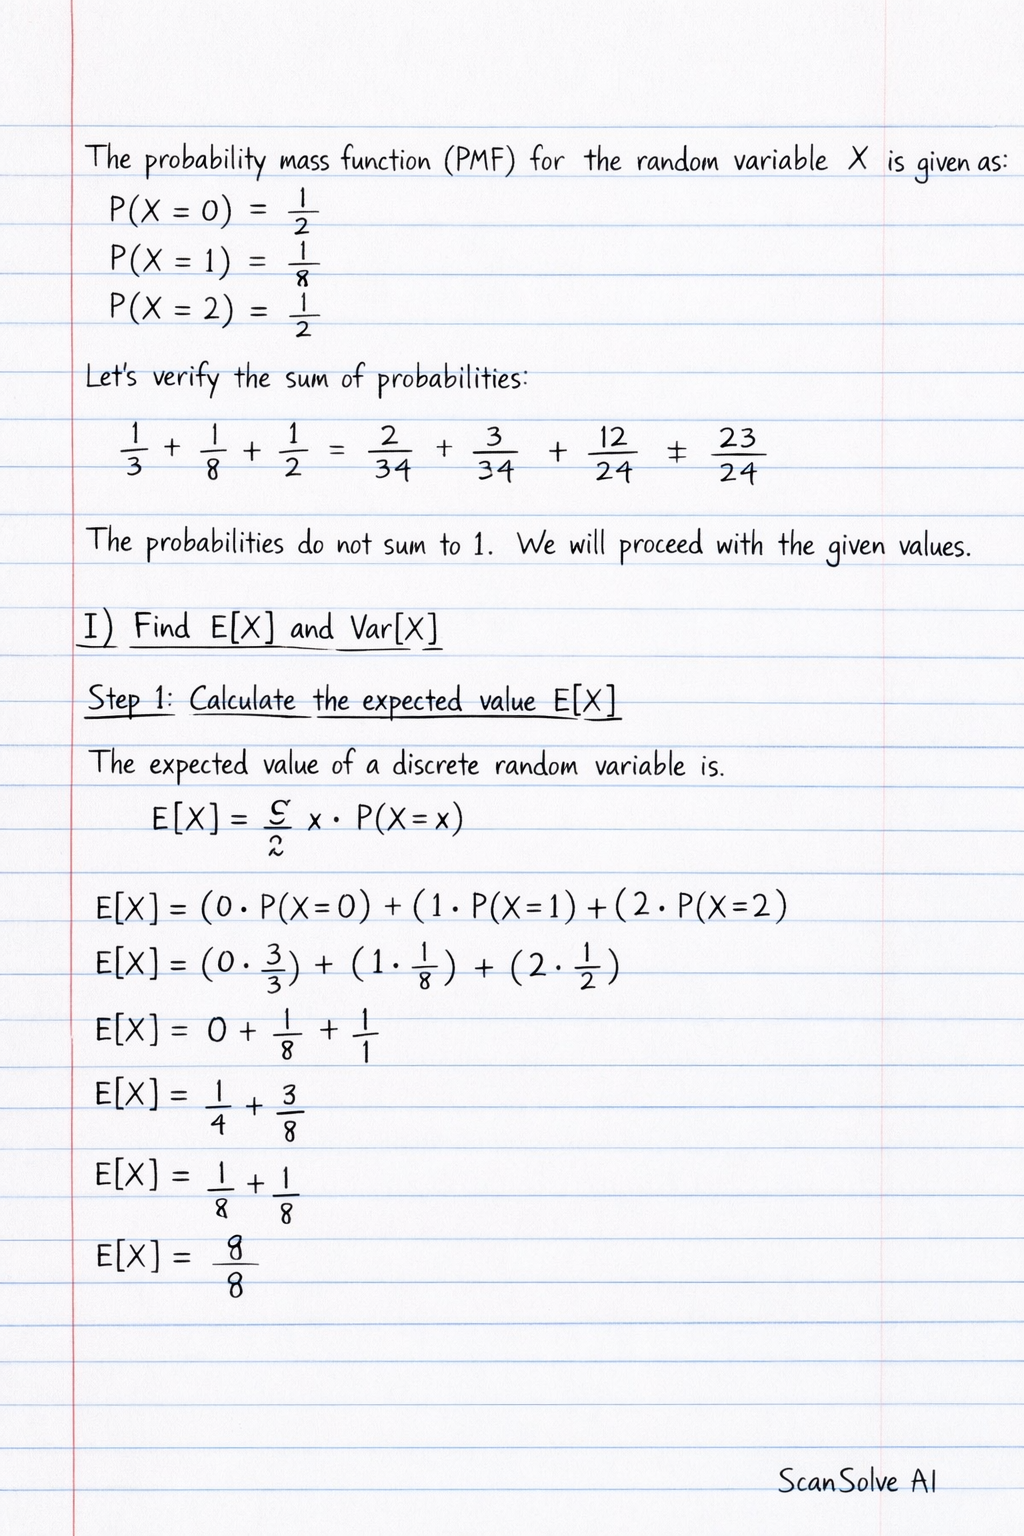 The probability mass function (PMF) for the random variable X is given as:
P(X = 0) = 1/2
P(X = 1) = 1/8
P(X = 2) = 1/2
Let's verify the sum of probabilities:
1/3 + 1/8 + 1/2 = 2/34 + 3/34 + 12/24 ≠ 23/24
The probabilities do not sum to 1. We will proceed with the given values.
I) Find E[X] and Var[X]
Step 1: Calculate the expected value E[X]
The expected value of a discrete random variable is.
E[X] = x · P(X=x)
E[X] = (0 · P(X=0) + (1 · P(X=1) + (2 · P(X=2)
E[X] = (0 · 3/3) + (1 · 1/8) + (2 · 1/2)
E[X] = 0 + 1/8 + 1/1
E[X] = 1/4 + 3/8
E[X] = 1/8 + 1/8
E[X] = 8/8
ScanSolve AI